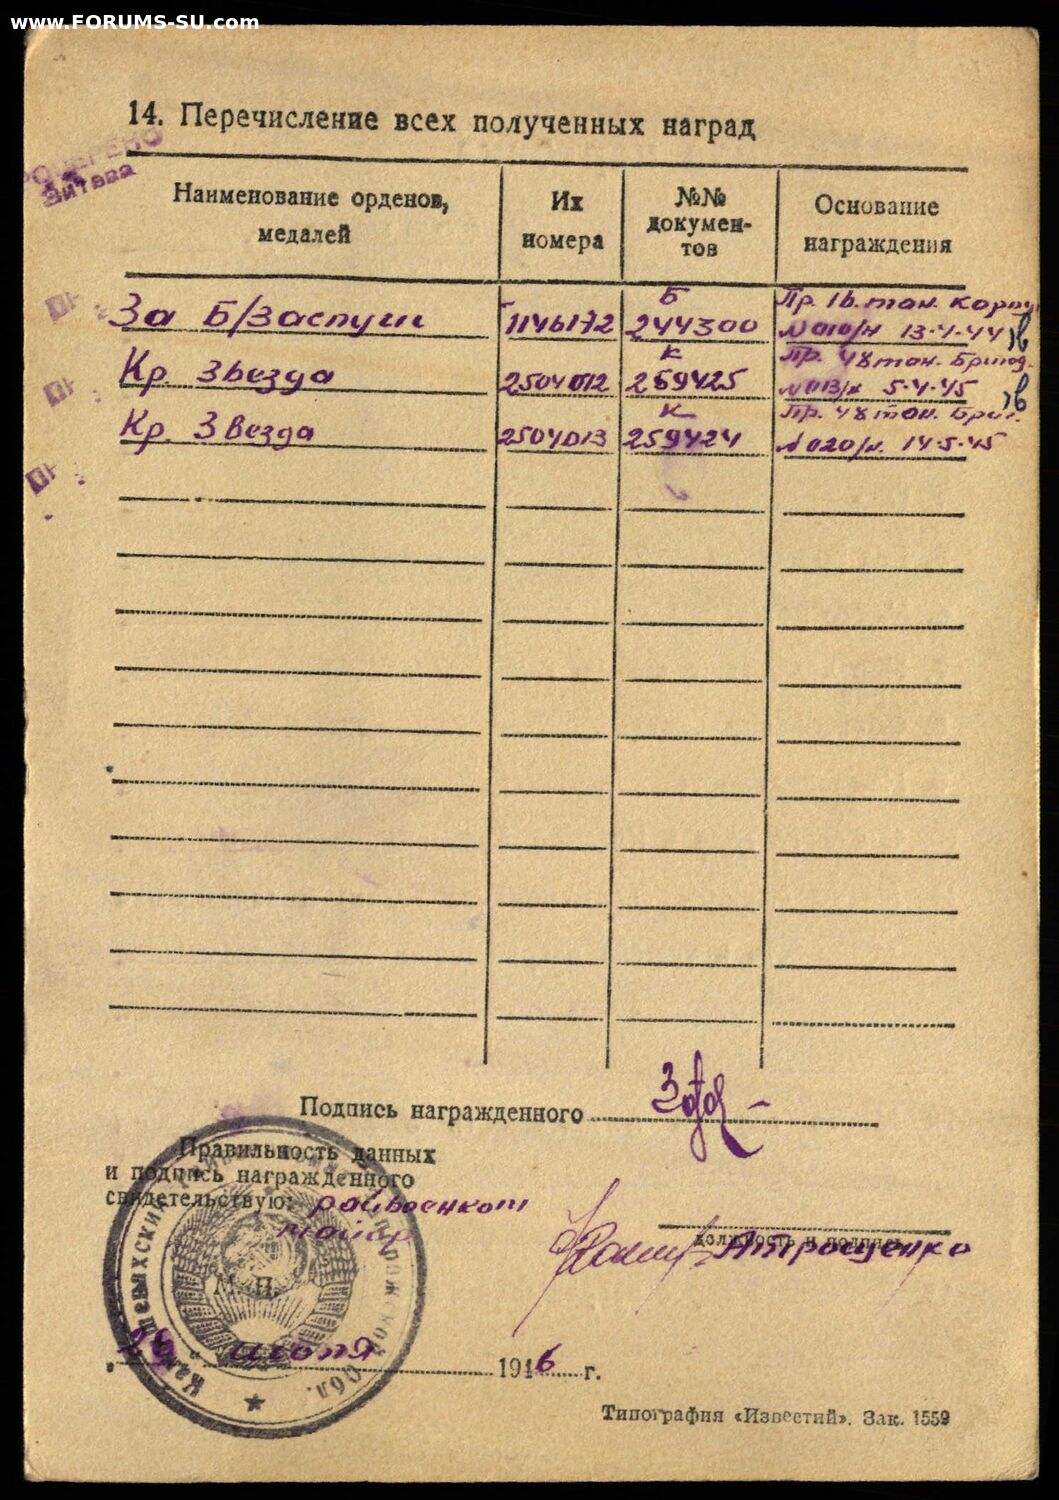 www.FORUMS-SU.com
14. Перечисление всех полученных наград
Наименование орденов, медалей
Их номера
№№ докумен-тов
Основание награждения
За Б/Заслуги 1146172 Б 244300 Пр. 16. тан. Корпу
N 010/н 13-4-44
Кр. Звезда 2504012 К 259425 Пр. 48 тан. Бригад.
N 013/н 5-4-45
Кр. Звезда 2504013 К 259424 Пр. 48 тан. Бриг.
N 020/н. 14-5-45
Подпись награжденного
Правильность данных
и подпись награжденного
свидетельствую: райвоенком
майор
Атрощенко
должность и подпись
М. П.
июля 1946 г.
Обл.
Типография «Известий». Зак. 1559